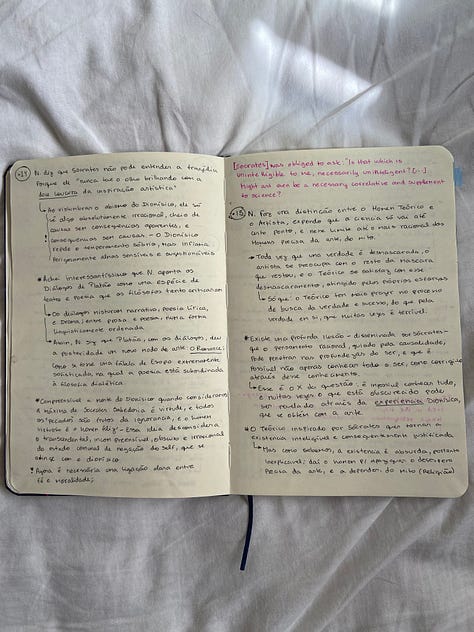 N. diz que Sócrates não pode entender a tragédia
porque ele "nunca teve o olho brilhando com a
doce loucura da inspiração artística"
↳ Ao vislumbrar o abismo do Dionísico, ele só
vê algo absolutamente irracional, cheio de
causas sem consequências aparentes, e
consequências sem causas - O Dionísico
repele o temperamento sóbrio, mas inflama
perigosamente almas sensíveis e
* Achei interessantíssimo que N. aponta os
Diálogos de Platão como uma espécie de
texto e poesia que os filósofos tanto criticaram
↳ Os diálogos misturam narrativa, poesia lírica,
e Drama, entre prosa e poesia, numa forma
linguisticamente ordenada
↳ Assim, N. diz que Platão, com os diálogos, deu
a posteridade um novo modo de arte: O Romance
como se fosse uma fábula de Esopo extremamente
sofisticada na qual a poesia está subordinada
à filosofia dialética
* Compreensível a morte do Dionísico quando consideramos
a máxima de Sócrates: Sabedoria é virtude, e todos
os "pecados" são frutos da ignorância, e o homem
virtuoso é o Homem feliz - Essa ideia desconsidera
o transcendental, incompreensível, obscuro e irracional
do estado comunal de negação do self, que se
atinge com o dionísico
! Agora é necessária uma ligação clara entre
fé e moralidade;
[Socrates] was obliged to ask: "Is that which is
unintelligible to me, necessarily unintelligent? [...]
Might art even be a necessary correlative and supplement
to science?
N. faz uma distinção entre o Homem Teórico e
o Artista, expondo que a ciência só vai até
certo ponto, e nesse limite até o mais racional dos
Homens precisa da arte, do mito.
→ Toda vez que uma verdade é desmascarada, o
artista se preocupa com o resto da máscara
que restou, e o Teórico se satisfaz com esse
desmascaramento, atingido pelos próprios esforços
↳ Só que: o Teórico tem mais prazer no processo
de busca da verdade e sucesso, do que pela
verdade em si, que muitas vezes é terrível.
* Existe uma profunda ilusão - disseminada por Sócrates -
que o pensamento racional, guiado pela causalidade,
pode penetrar nas profundezas do ser, e que é
possível não apenas conhecer todo o ser, como corrigi-lo
através desse conhecimento.
↳ Esse é o X da questão, é impossível conhecer tudo,
e muitas vezes o que está obscurecido pode
ser revelado através da experiência Dionísica,
que se obtém com a arte.
* O Teórico inspirado por Sócrates quer tornar a
existência inteligível e consequentemente justificada
↳ Mas como sabemos, a existência é absurda, portanto
inexplicável; daí o homem p/ apaziguar o desespero
precisa da arte, e a depender, do mito (Religião)